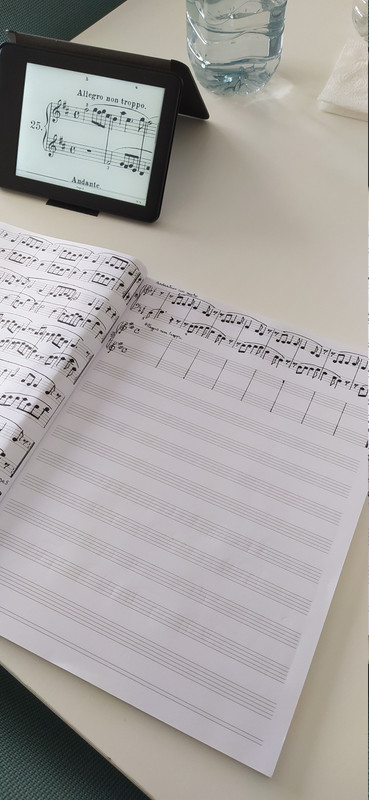 Allegro non troppo.
25.
Andante.
Allegro non tropp.